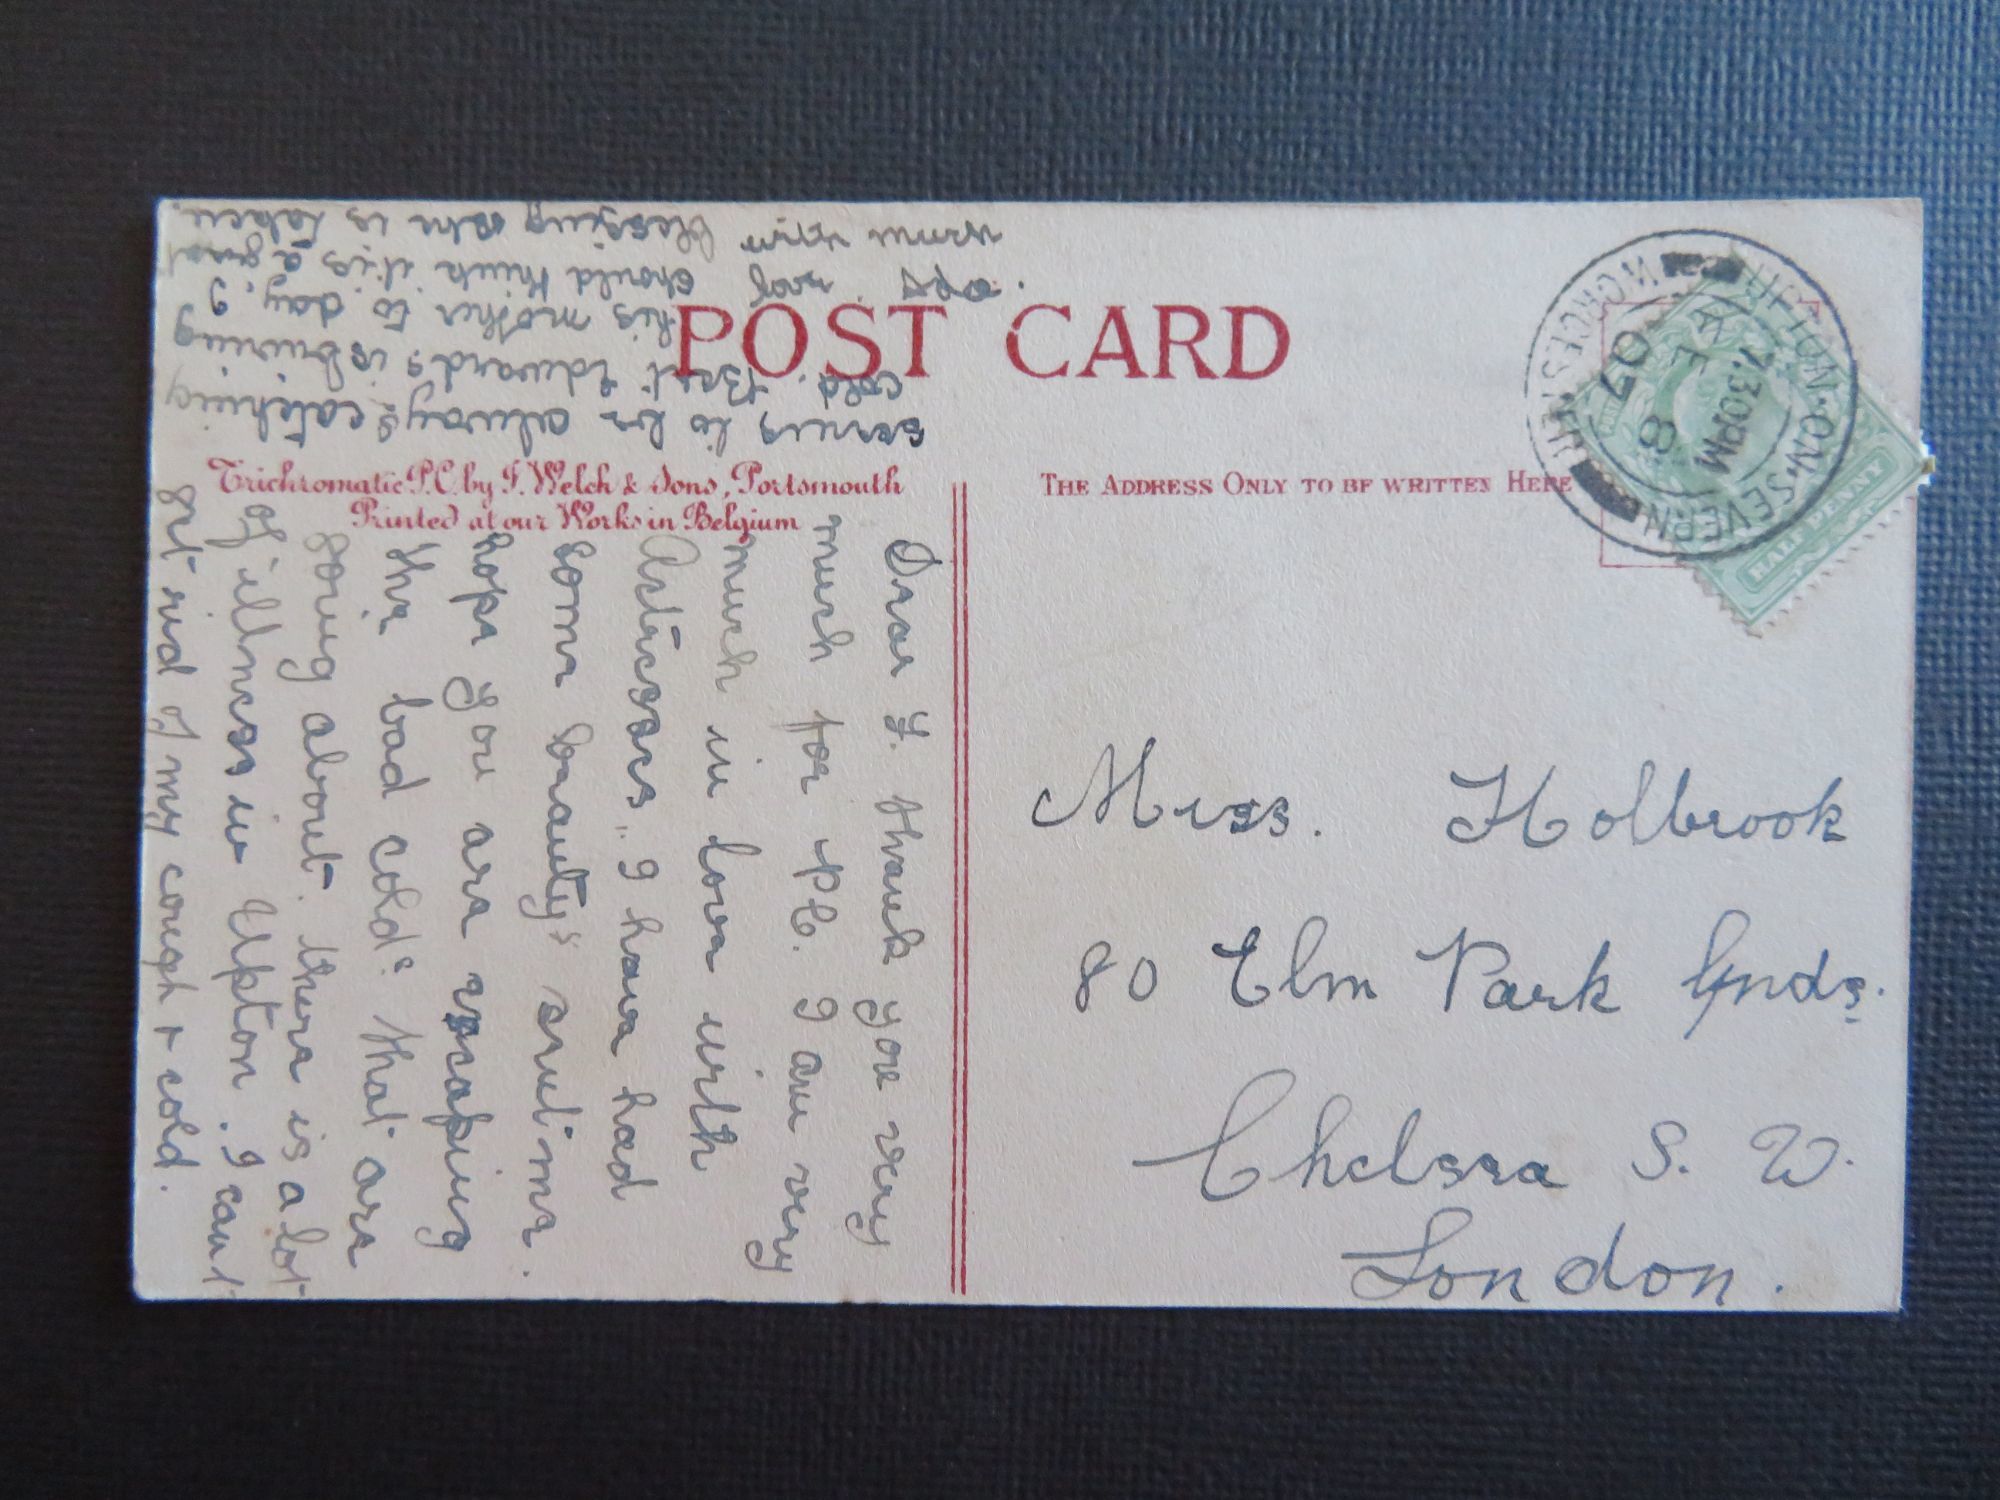 POST CARD
Trichromatic P.C. by F. Welch & Sons, Portsmouth
Printed at our Works in Belgium
THE ADDRESS ONLY TO BE WRITTEN HERE
UPTON·ON·SEVERN
WORCESTER
7.30PM
8
07
HALF PENNY
Miss. Holbrook
80 Elm Park Gnds.
Chelsea S. W.
London.
Dear F. thank you very
much for P.C. I am very
much in love with
Actresses, I have had
some beauty's sent me.
hope you are escaping
the bad cold's that are
going about. there is a lot
of illness in Upton. I can't
get rid of my cough & cold.
seems to be always catching
cold. Bert Edwards is burying
his mother to day, I
should think it is a great
blessing she is taken.